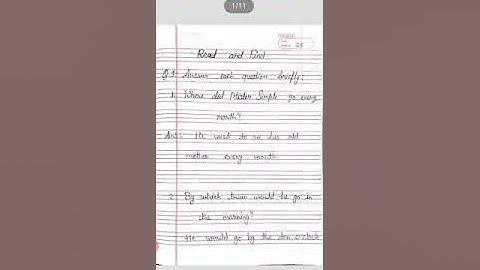 1/11
Read and Find
Q.1 Answer each question briefly:
1. Where did Mister Simple go every
month?
Ans: He went to see his old
mother every month
2. By which train would he go in
the morning?
He would go by the ten o'clock